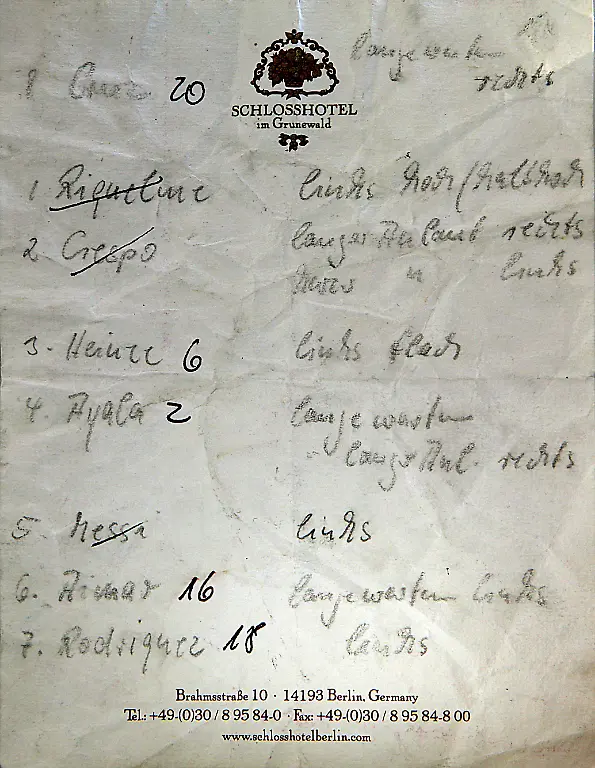 lange warten
rechts
1 Cruz 20
SCHLOSSHOTEL
im Grunewald
1 Riquelme links hoch/halbhoch
2 Crespo langer Anlauf rechts
kurzer " links
3. Heinze 6 links flach
4. Ayala 2 lange warten
langer Anl. rechts
5. Messi links
6. Aimar 16 lange warten links
7. Rodriguez 18 links
Brahmsstraße 10 · 14193 Berlin, Germany
Tel.: +49-(0)30 / 8 95 84-0 · Fax: +49-(0)30 / 8 95 84-8 00
www.schlosshotelberlin.com